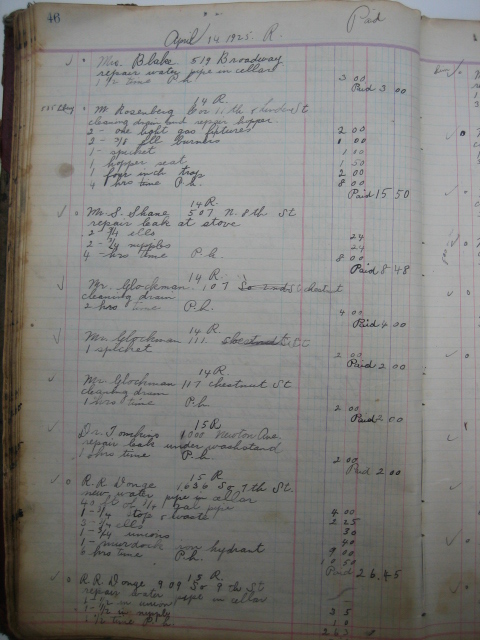 46
April 14 1925. R. Paid
Mrs. Blake 519 Broadway
repair water pipe in cellar
1 1/2 time P.h. 3 00
Paid 3 00
14 R.
M. Rosenberg Cor 11th & St
cleaning drain and repair hopper
2 - one light gas fixtures 2 00
2 - burners 1 00
1 - spicket 1 00
1 hopper seat 1 50
1 four inch trap 2 00
4 hrs time P.h. 8 00
Paid 15 50
14 R.
Mr. S. Shane 507 N. 8th St
repair leak at stove
2 3/4 ells 24
2 - 3/4 nipples 24
4 - hrs time P.h. 8 00
Paid 8 48
14 R.
Mr. Glockman 107 chestnut
cleaning drain
2 hrs time P.h. 4 00
Paid 4 00
14 R.
Mr. Glockman 111
1 spicket 2 00
Paid 2 00
14 R.
Mr. Glockman 117 chestnut St
cleaning drain
1 hrs time P.h. 2 00
Paid 2 00
15 R
Dr. Tomkins Newton Ave
repair leak under washstand
1 hrs time P.h. 2 00
Paid 2 00
15 R
R.R. Donge 1636 So. 7th St.
new water pipe in cellar
40 ft of 3/4 gal pipe 4 00
1 - 3/4 stop & waste 2 25
3 - 3/4 ells 30
1 - 3/4 unions 40
1 - murdock hydrant 9 00
6 hrs time P.h. 10 50
Paid 26.45
15 R.
R.R. Donge 909 So 9th St
repair water pipe in cellar
1 - 1/2 in union 35
1 - 1/2 in nipple 10
1 1/2 time P.h.